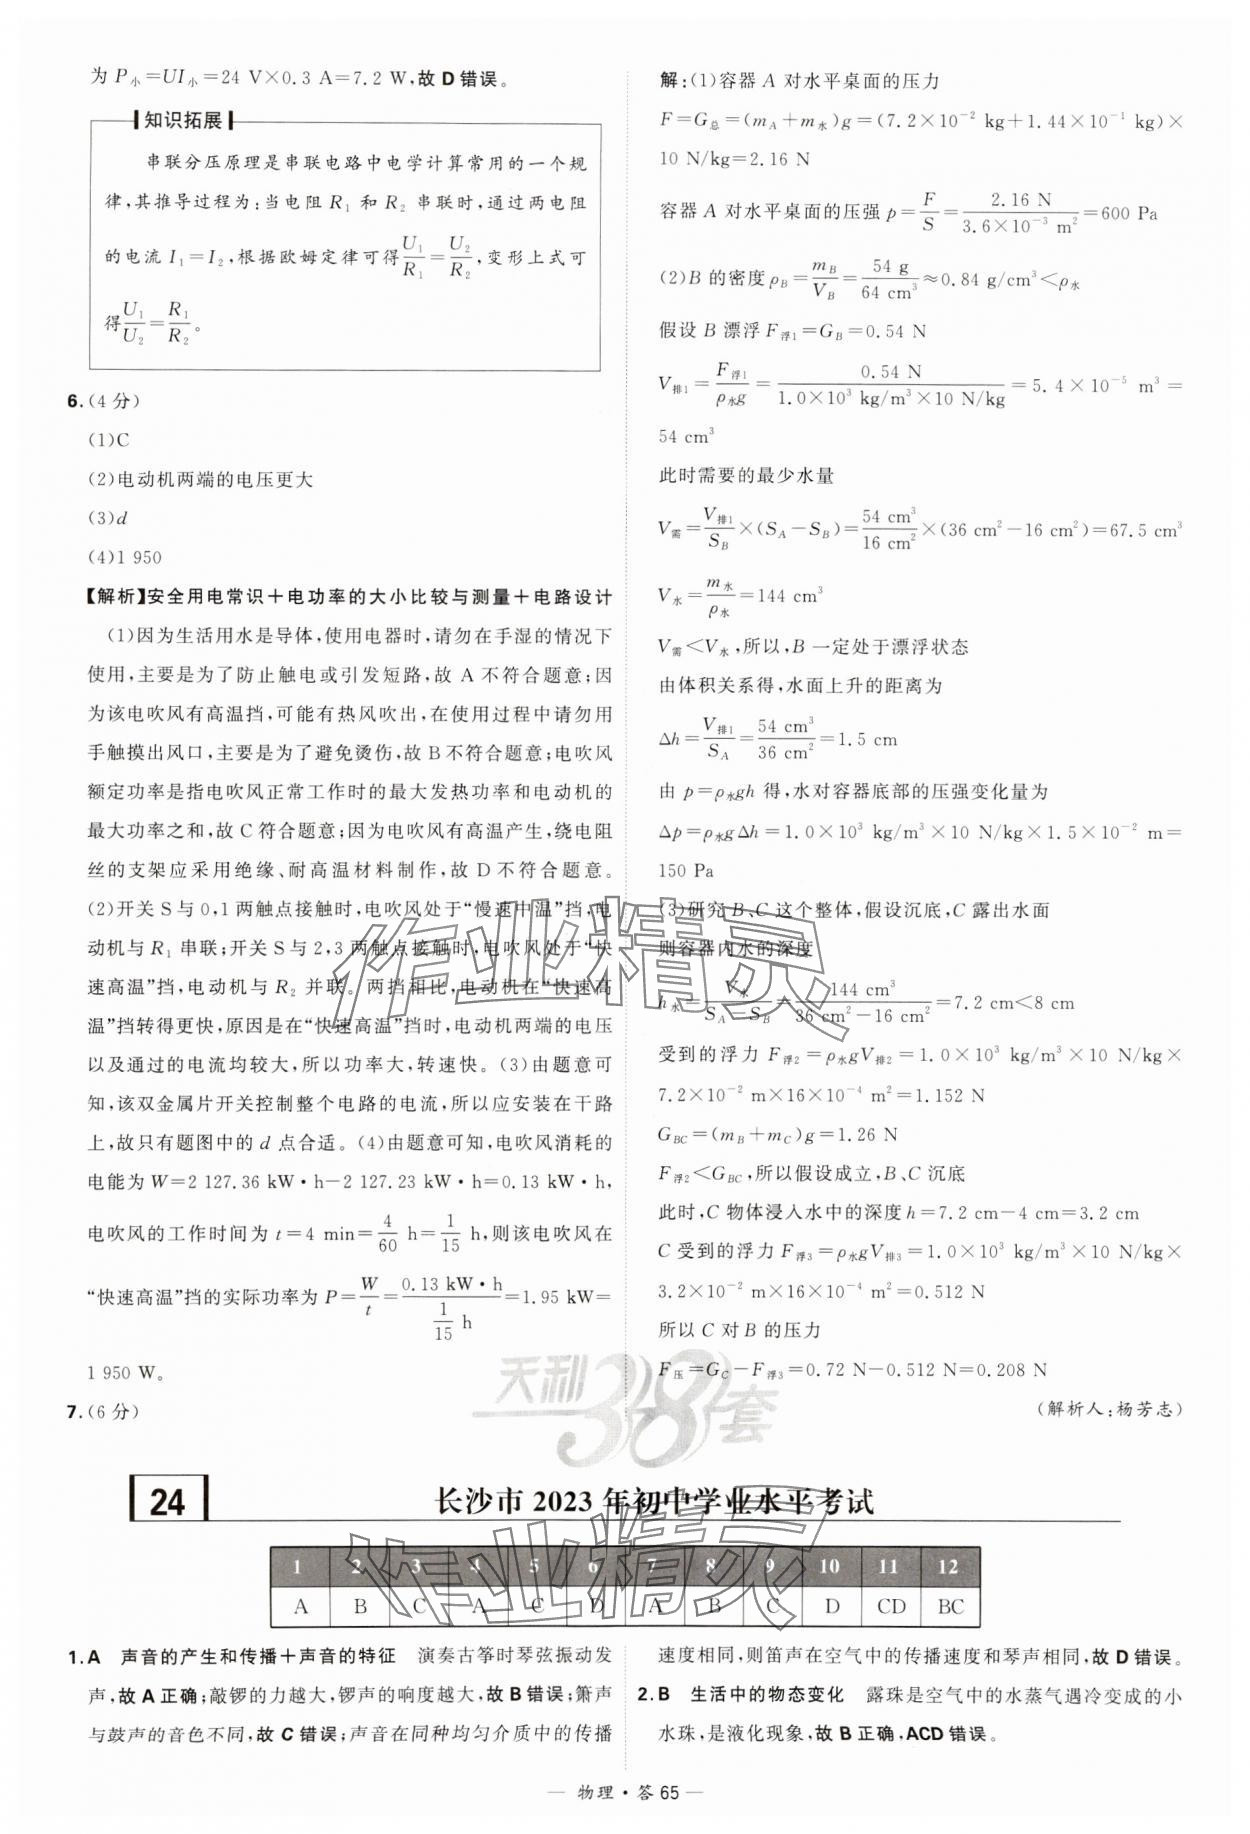 为 P小=UI小=24 V×0.3 A=7.2 W,故 D 错误。
知识拓展
串联分压原理是串联电路中电学计算常用的一个规
律,其推导过程为:当电阻 R₁ 和 R₂ 串联时,通过两电阻
的电流 I₁=I₂,根据欧姆定律可得U₁/R₁=U₂/R₂,变形上式可
得U₁/U₂=R₁/R₂。
6.(4 分)
(1)C
(2)电动机两端的电压更大
(3)d
(4)1 950
【解析】安全用电常识+电功率的大小比较与测量+电路设计
(1)因为生活用水是导体,使用电器时,请勿在手湿的情况下
使用,主要是为了防止触电或引发短路,故 A 不符合题意;因
为该电吹风有高温挡,可能有热风吹出,在使用过程中请勿用
手触摸出风口,主要是为了避免烫伤,故 B 不符合题意;电吹风
额定功率是指电吹风正常工作时的最大发热功率和电动机的
最大功率之和,故 C 符合题意;因为电吹风有高温产生,绕电阻
丝的支架应采用绝缘、耐高温材料制作,故 D 不符合题意。
(2)开关 S 与 0,1 两触点接触时,电吹风处于“慢速中温”挡,电
动机与 R₁ 串联;开关 S 与 2,3 两触点接触时,电吹风处于“快
速高温”挡,电动机与 R₂ 并联。两挡相比,电动机在“快速高
温”挡转得更快,原因是在“快速高温”挡时,电动机两端的电压
以及通过的电流均较大,所以功率大,转速快。(3)由题意可
知,该双金属片开关控制整个电路的电流,所以应安装在干路
上,故只有题图中的 d 点合适。(4)由题意可知,电吹风消耗的
电能为 W=2 127.36 kW·h-2 127.23 kW·h=0.13 kW·h,
电吹风的工作时间为 t=4 min=4/60 h=1/15 h,则该电吹风在
“快速高温”挡的实际功率为 P=W/t=0.13 kW·h/(1/15 h)=1.95 kW=
1 950 W。
7.(6 分)
解:(1)容器 A 对水平桌面的压力
F=G总=(mA+m水)g=(7.2×10⁻² kg+1.44×10⁻¹ kg)×
10 N/kg=2.16 N
容器 A 对水平桌面的压强 p=F/S=2.16 N/(3.6×10⁻³ m²)=600 Pa
(2)B 的密度 ρB=mB/VB=54 g/64 cm³≈0.84 g/cm³<ρ水
假设 B 漂浮 F浮1=GB=0.54 N
V排1=F浮1/ρ水g=0.54 N/(1.0×10³ kg/m³×10 N/kg)=5.4×10⁻⁵ m³=
54 cm³
此时需要的最少水量
V需=V排1/SB×(SA-SB)=54 cm³/16 cm²×(36 cm²-16 cm²)=67.5 cm³
V水=m水/ρ水=144 cm³
V需<V水,所以,B 一定处于漂浮状态
由体积关系得,水面上升的距离为
Δh=V排1/SA=54 cm³/36 cm²=1.5 cm
由 p=ρ水gh 得,水对容器底部的压强变化量为
Δp=ρ水gΔh=1.0×10³ kg/m³×10 N/kg×1.5×10⁻² m=
150 Pa
(3)研究 B、C 这个整体,假设沉底,C 露出水面
则容器内水的深度
h水=V水/(SA-SB)=144 cm³/(36 cm²-16 cm²)=7.2 cm<8 cm
受到的浮力 F浮2=ρ水gV排2=1.0×10³ kg/m³×10 N/kg×
7.2×10⁻² m×16×10⁻⁴ m²=1.152 N
GBC=(mB+mC)g=1.26 N
F浮2<GBC,所以假设成立,B、C 沉底
此时,C 物体浸入水中的深度 h=7.2 cm-4 cm=3.2 cm
C 受到的浮力 F浮3=ρ水gV排3=1.0×10³ kg/m³×10 N/kg×
3.2×10⁻² m×16×10⁻⁴ m²=0.512 N
所以 C 对 B 的压力
F压=GC-F浮3=0.72 N-0.512 N=0.208 N
(解析人:杨芳志)
天利38套
作业精灵
24 长沙市 2023 年初中学业水平考试
作业精灵
1 2 3 4 5 6 7 8 9 10 11 12
A B C A C D A B C D CD BC
1.A 声音的产生和传播+声音的特征 演奏古筝时琴弦振动发
声,故 A 正确;敲锣的力越大,锣声的响度越大,故 B 错误;箫声
与鼓声的音色不同,故 C 错误;声音在同种均匀介质中的传播
速度相同,则笛声在空气中的传播速度和琴声相同,故 D 错误。
2.B 生活中的物态变化 露珠是空气中的水蒸气遇冷变成的小
水珠,是液化现象,故 B 正确,ACD 错误。
— 物理·答 65 —